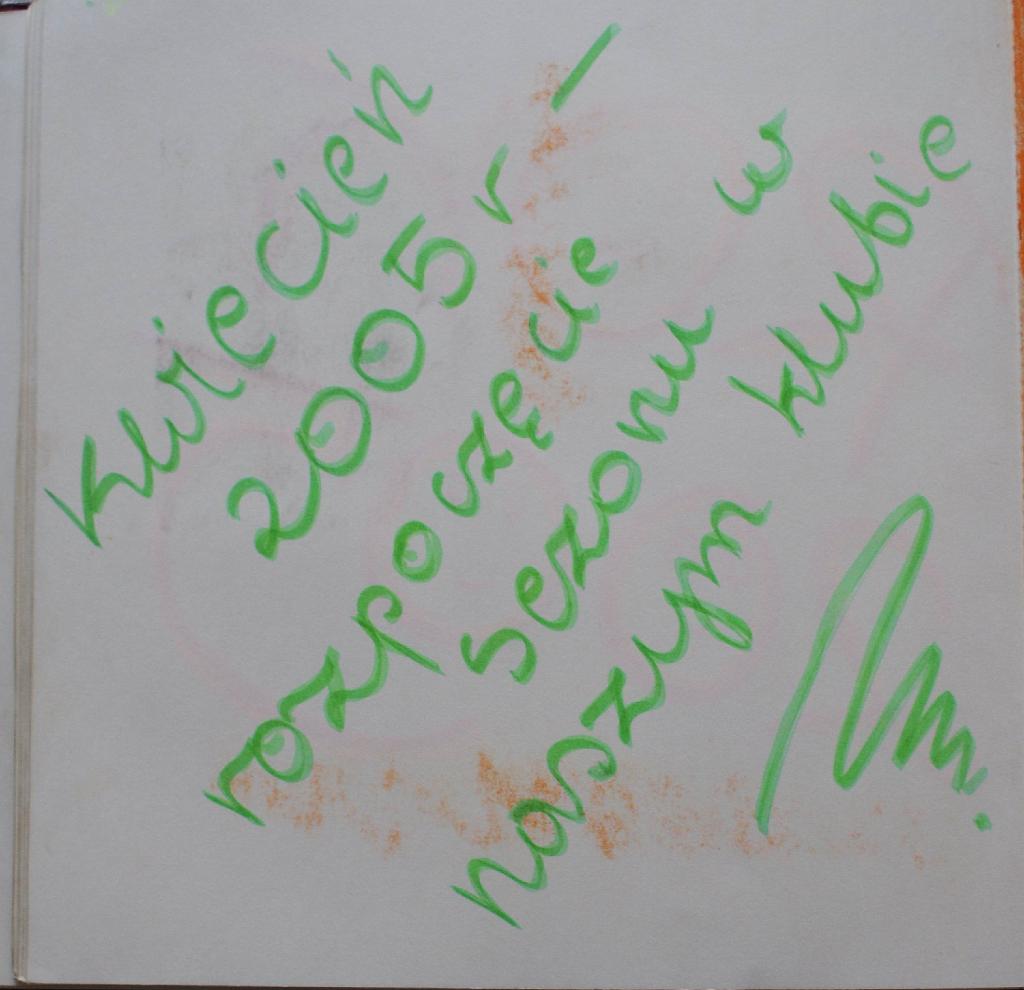 Kwiecień
2005 r –
rozpoczęcie
sezonu w
naszym klubie